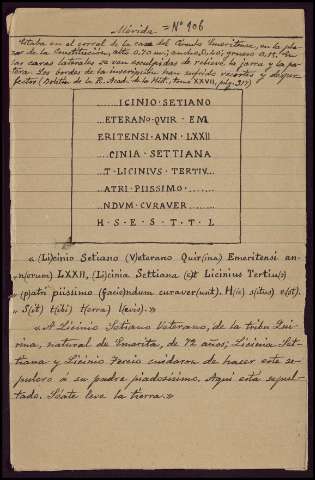 Mérida = Nº 106
Estaba en el corral de la casa del Círculo Emeritense, en la pla-
za de la Constitución, alto 0.70 m; ancho 0,40; grueso 0.15. En
las caras laterales se ven esculpidas de relieve la jarra y la pá-
tera. Los bordes de la inscripción han sufrido recortes y desper-
fectos (Boletín de la R. Acad. de la Hist., tomo XXVII, pág. 317)
... ICINIO SETIANO
.. ETERANO·QVIR· EM
ERITENSI· ANN· LXXII
...CINIA· SETTIANA
..T· LICINIVS· TERTIV...
..ATRI PIISSIMO........
...NDVM CVRAVER......
H - S - E - S - T - T - L
« (Li)cinio Setiano (V)eterano Quir(ina) Emeritensi an-
n(orum) LXXII, (Li)cinia Settiana (e)t Licinius Tertiu(s)
(p)atri piissimo (facie)ndum curaver(unt). H(ic) s(itus) e(st).
S(it) t(ibi) t(erra) l(evis). »
« A Licinio Setiano Veterano, de la tribu Qui-
rina, natural de Emerita, de 72 años; Licinia Set-
tiana y Licinio Tercio cuidaron de hacer este se-
pulcro á su padre piadosísimo. Aquí está sepul-
tado. Séate leve la tierra. »